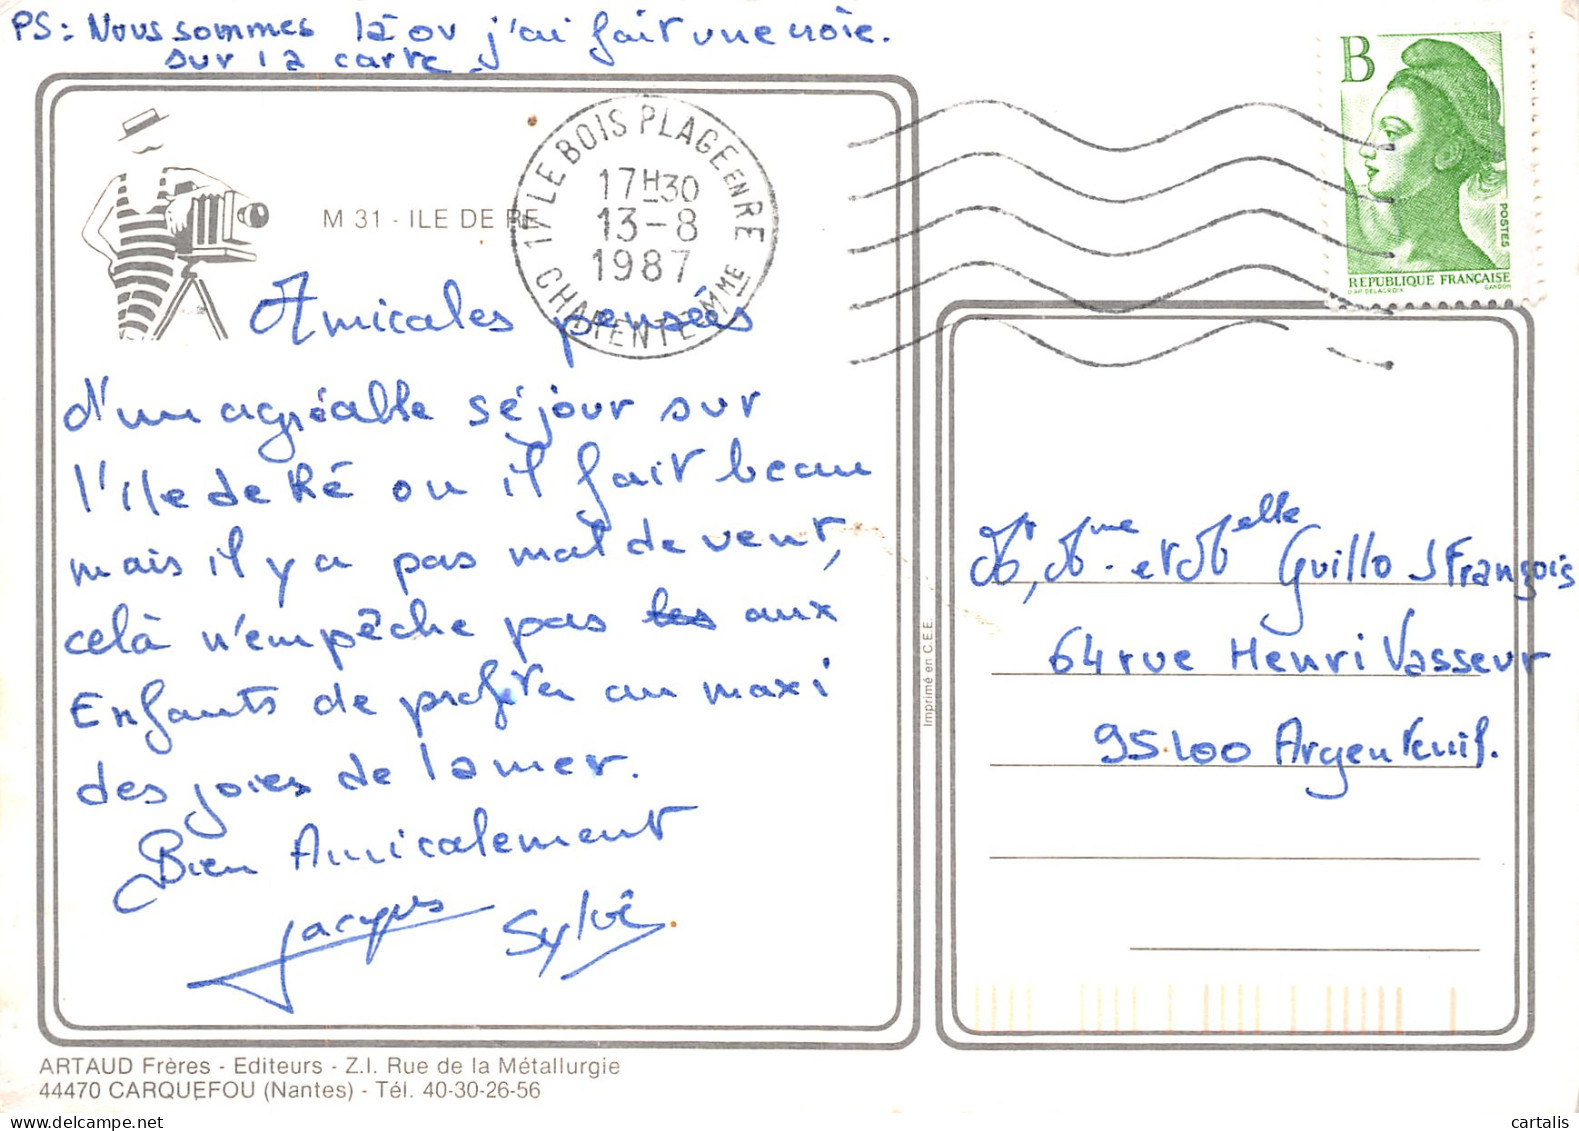 PS: Nous sommes là ou j'ai fait une croie.
sur la carte.
M 31 - ILE DE RE
17 LE BOIS PLAGE EN RE
17H30
13-8
1987
CHARENTE MME
B
POSTES
REPUBLIQUE FRANÇAISE
D'AP. DELACROIX GANDON
Amicales pensées
d'un agréable séjour sur
l'ile de Ré ou il fait beau
mais il y a pas mal de vent,
celà n'empêche pas les aux
Enfants de profiter au maxi
des joies de la mer.
Bien Amicalement
Jacques Sylvie
Imprimé en C.E.E.
Mr, Mme. et Melle Guillo J François
64 rue Henri Vasseur
95100 Argenteuil.
ARTAUD Frères - Editeurs - Z.I. Rue de la Métallurgie
44470 CARQUEFOU (Nantes) - Tél. 40-30-26-56
www.cartalis.com